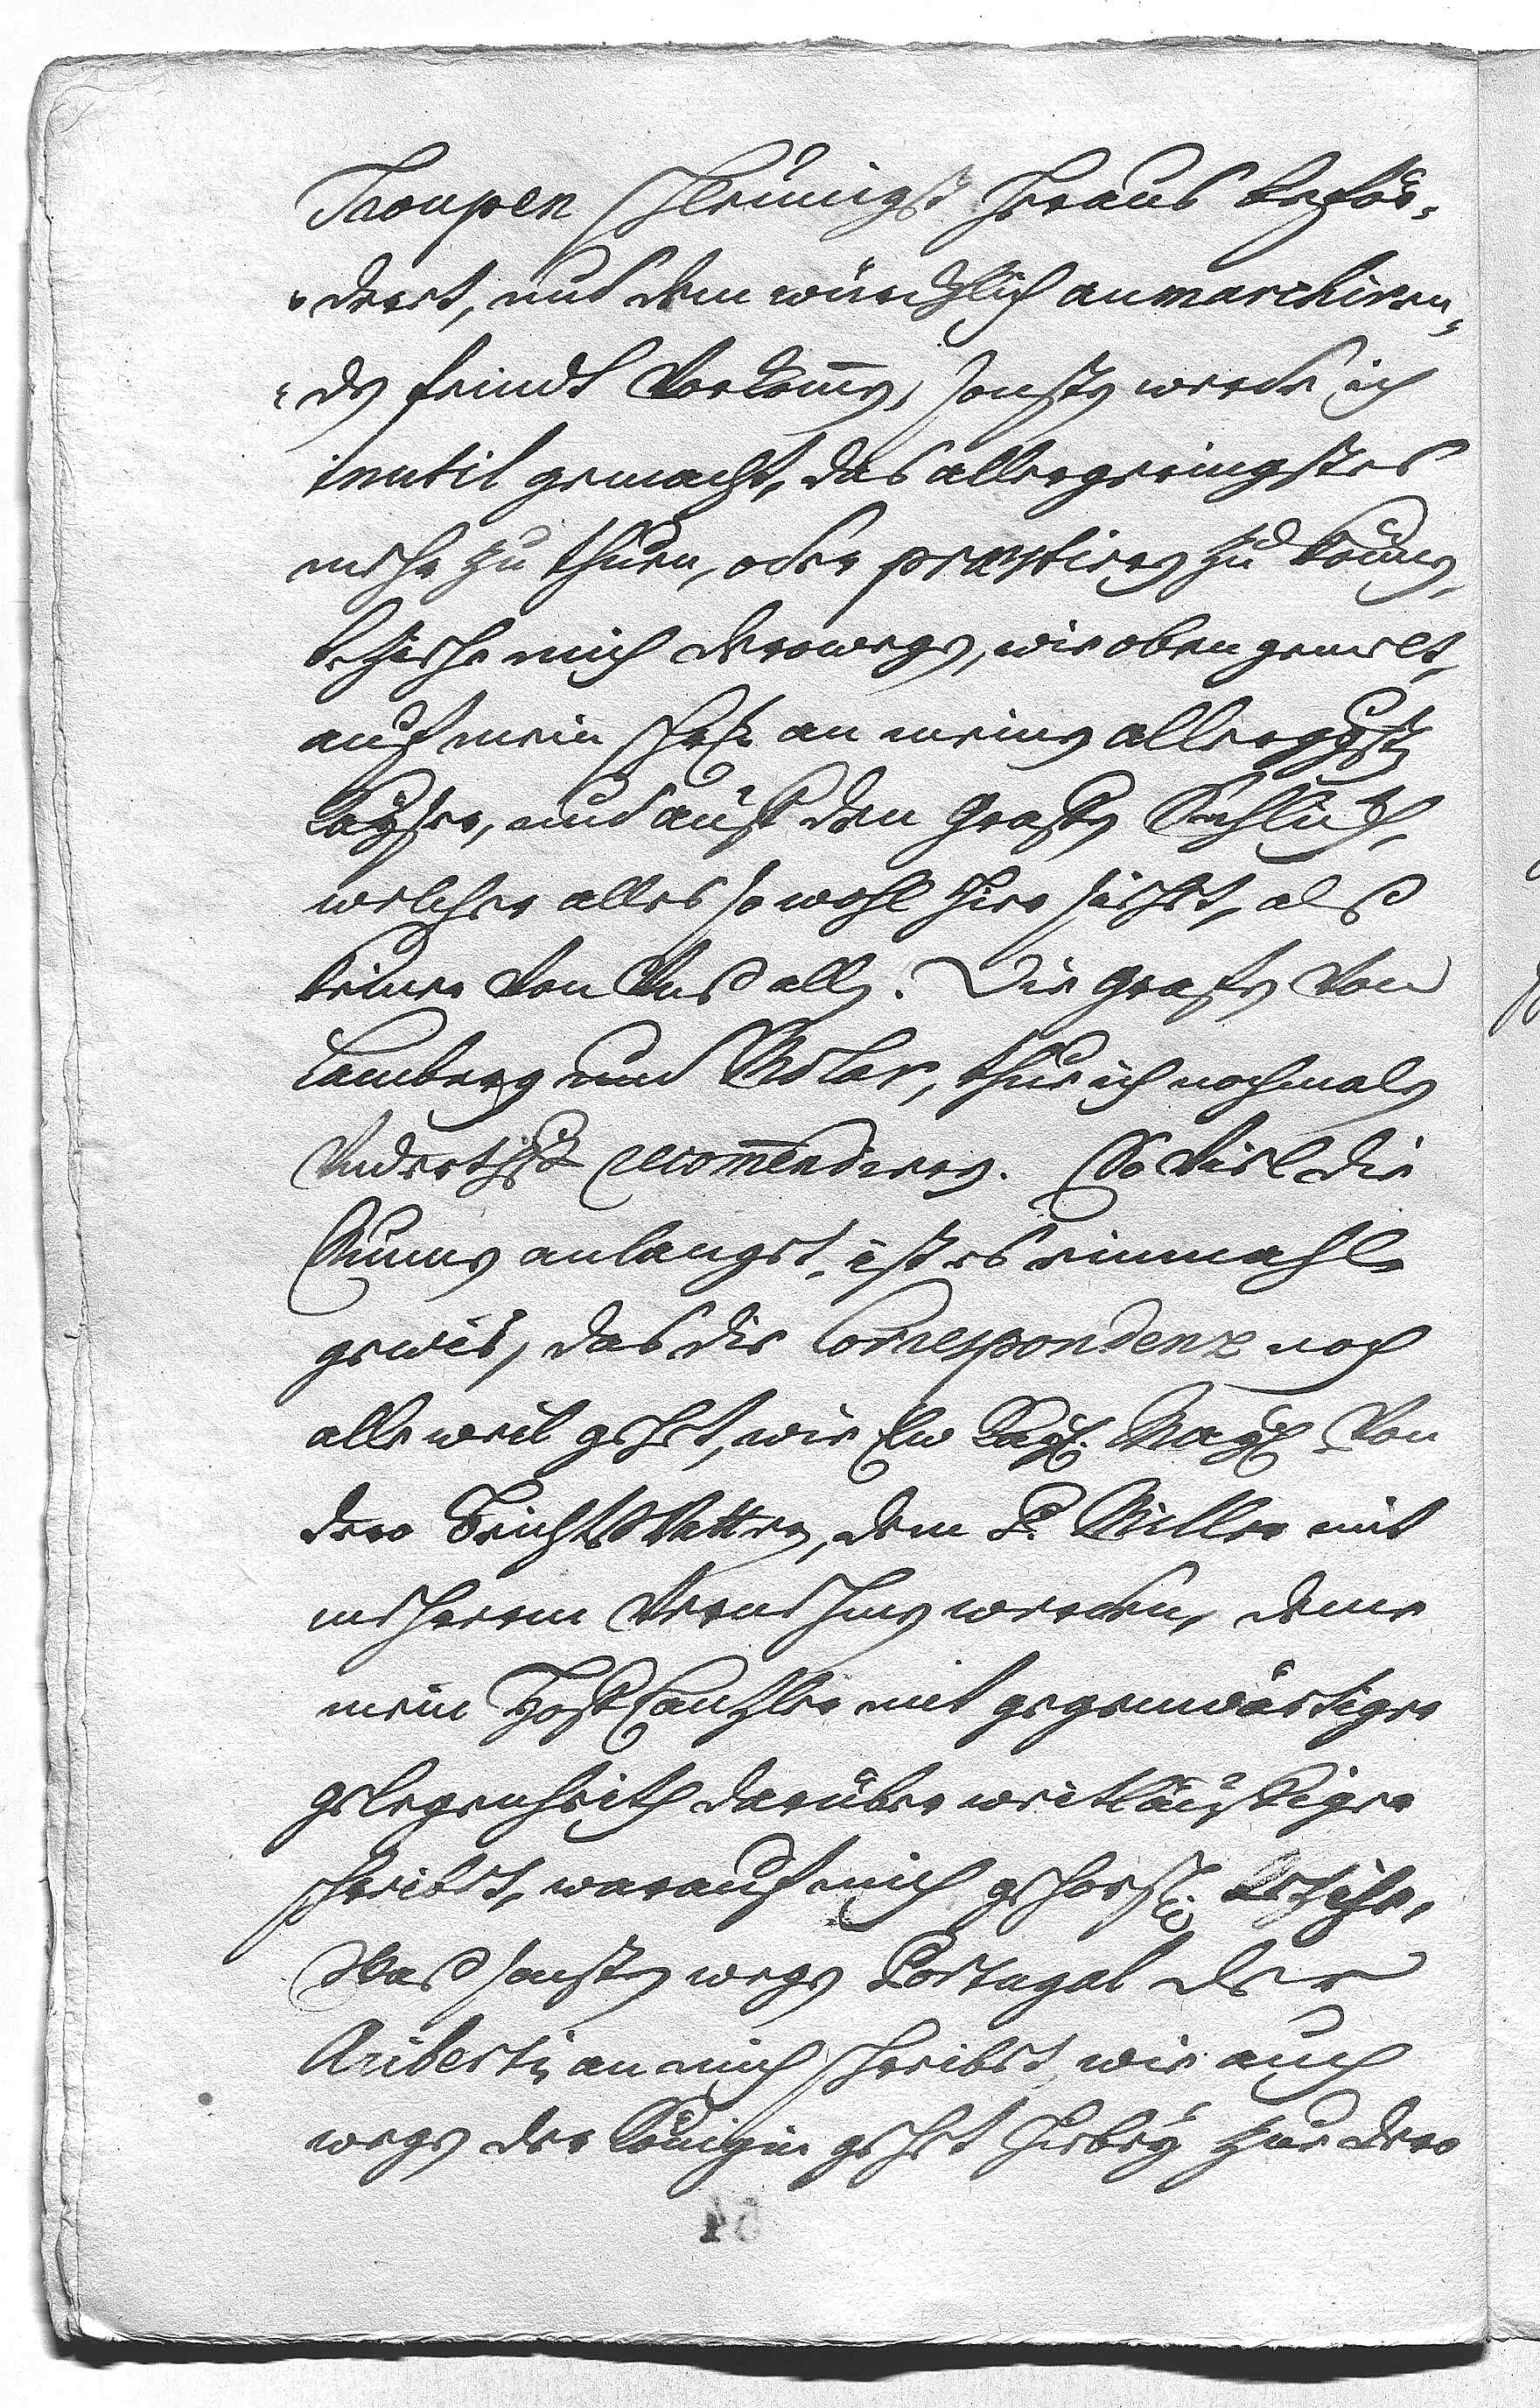 Troupen schleunigst heraus beför-
-dert, und dem würcklich anmarchiren-
-den feindt vorkommen, sonsten werde ich
inutil gemacht, das allergeringstes
mehr zu thuen, oder præstiren zu können,
beziehe mich derowegen, wie oben gemelt,
auf mein schr. an meinen allergsten
Kayser, und auf den Grafen Schlickh,
welcher alles so wohl hier siehet, alß
keiner von Unß allen. Die Grafen von
Lamberg und Adler, thue ich nochmalen
Underthst recommendiren. So viel die
anlanget, ist es einmahl
gewis, das die Correspondenz noch
alle weil gehet, wie Ew Kays. May. von
dero Beicht Vattern, dem P. Miller mit
mehrerm vernehmen werden, deme
mein Hoff Canzler mit gegenwärtiger
gelegenheith darüber weitläuffiger
schreibet, warauf mich gehors. beziehe.
Waß sonsten wegen Portugal der
Ariberti an mich schreibet, wie auch
wegen der Königin gehet hiebey zur dero
54